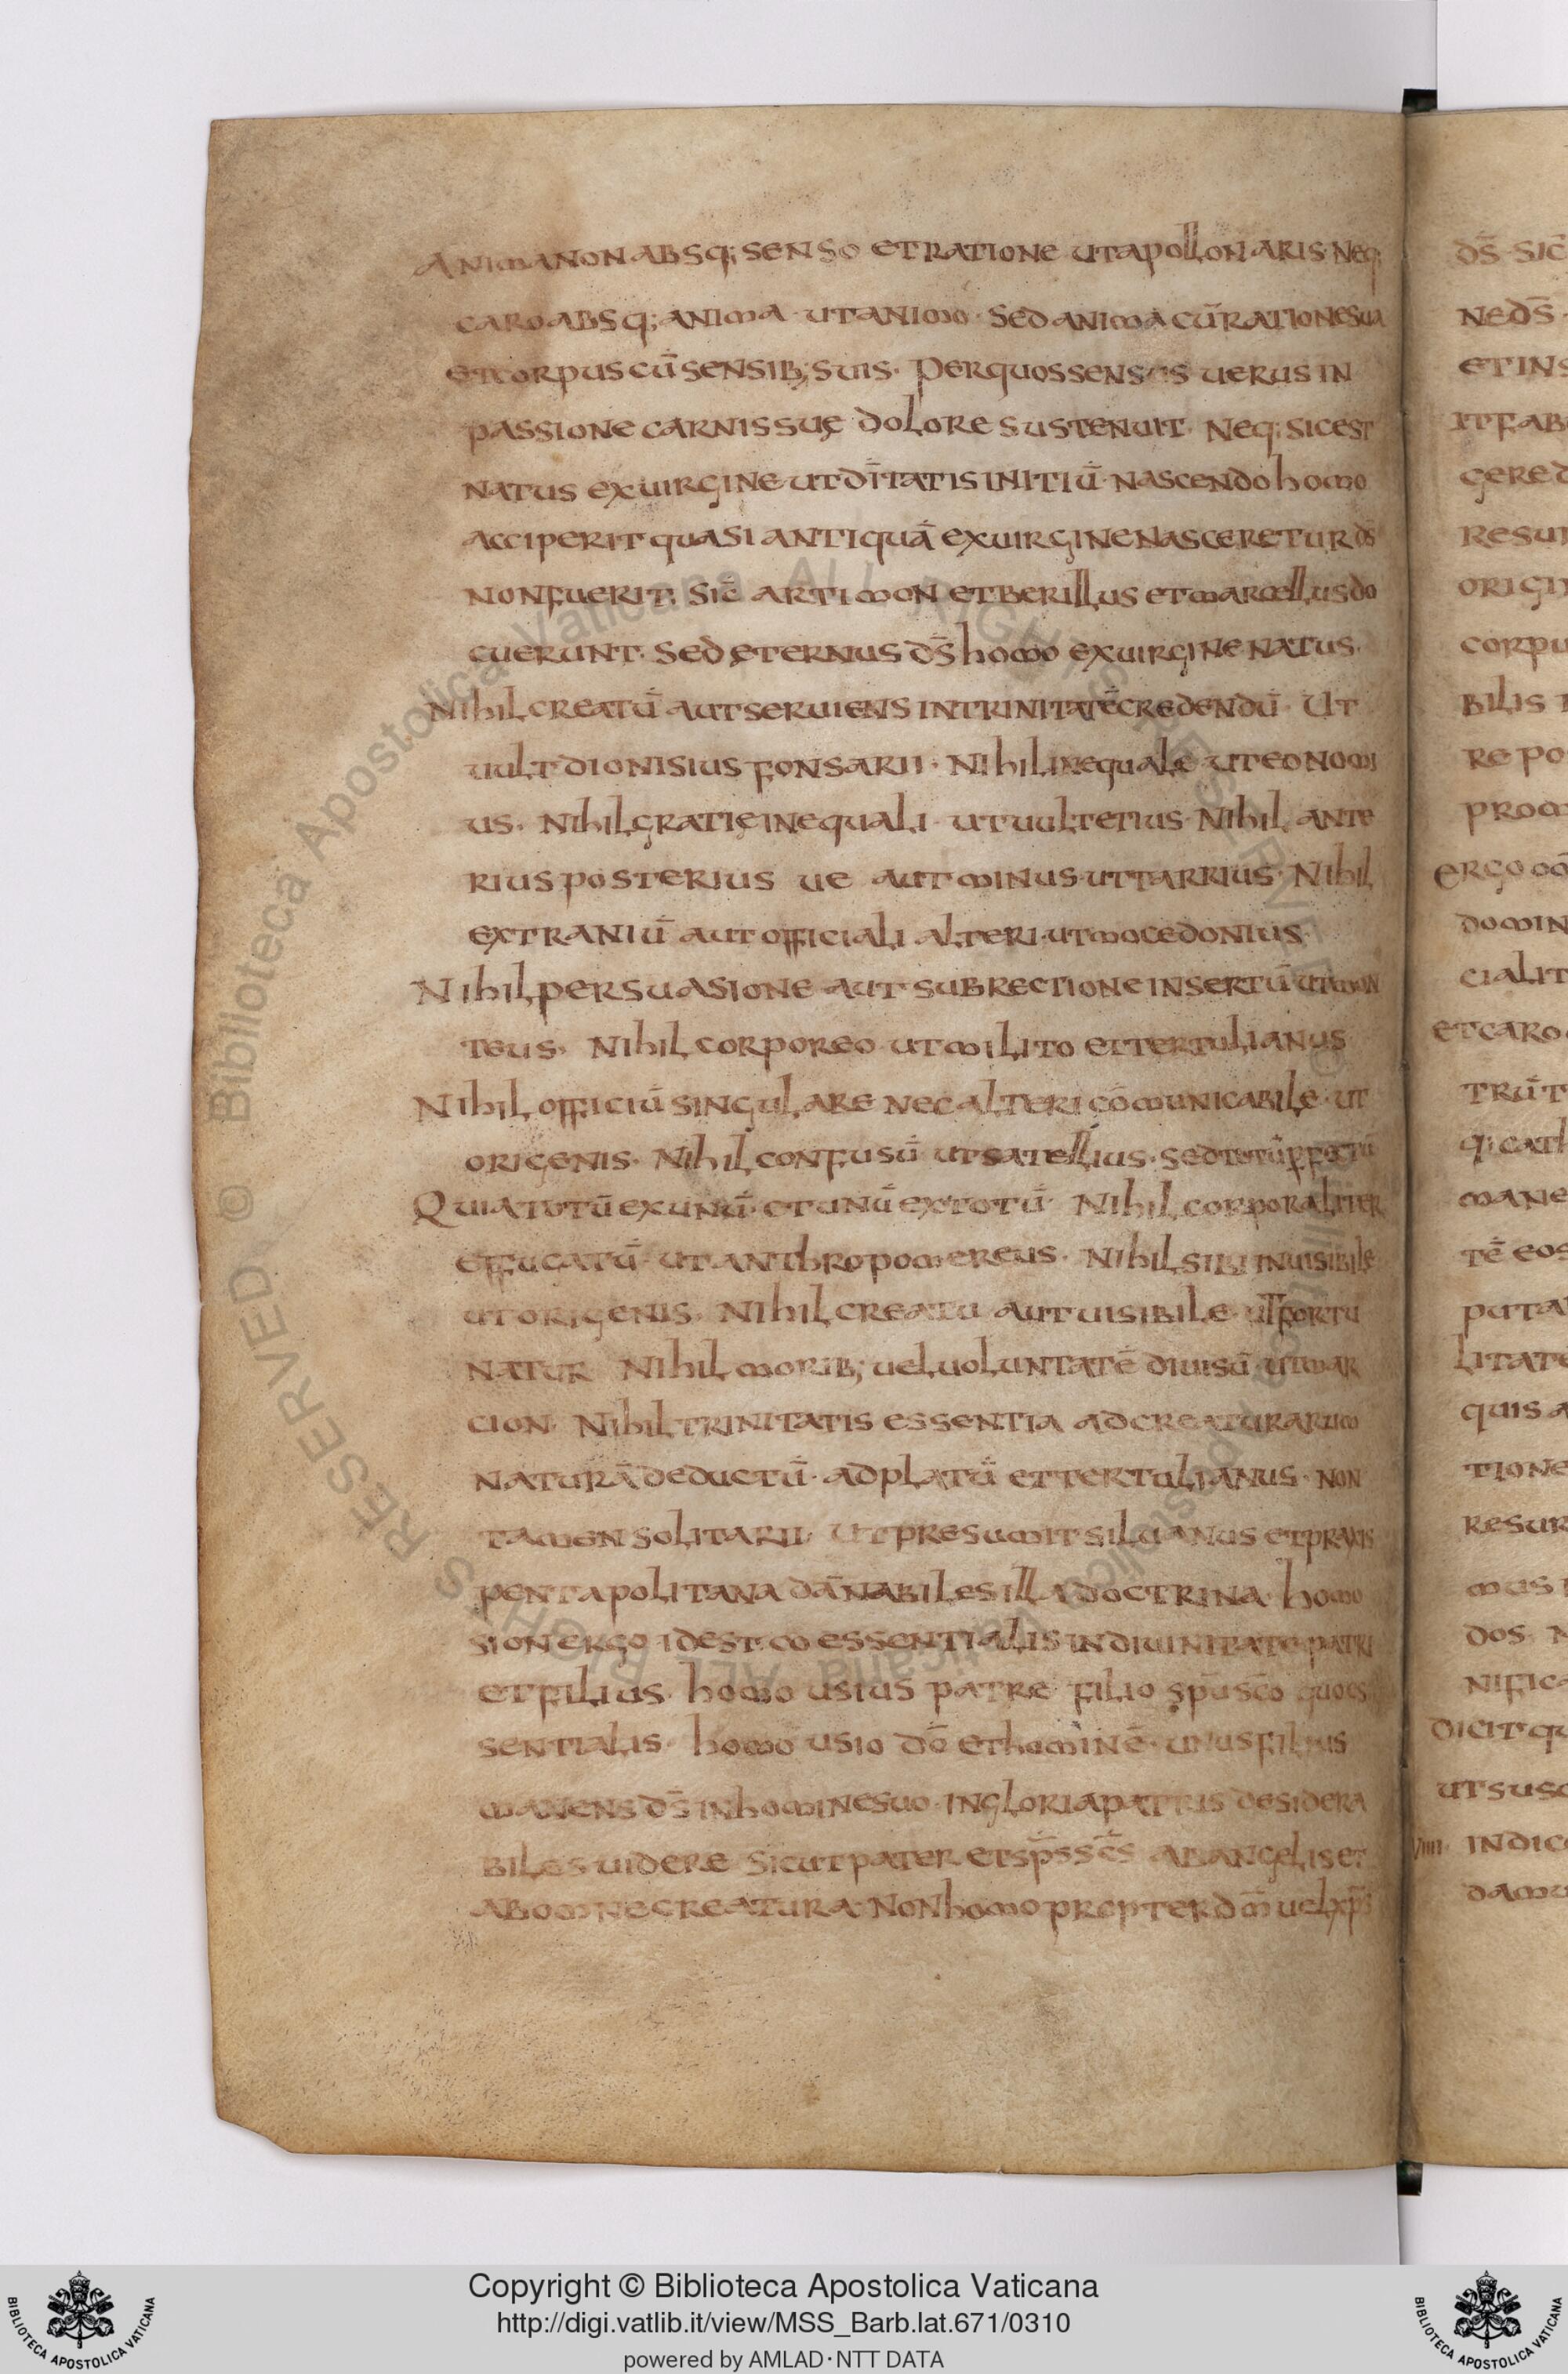 Anima non absq; senso et ratione ut apollonaris. Neq;
caro absq; anima ut animo. Sed anima cū ratione sua
et corpus cū sensib; suis. Per quos sensus uerus in
passione carnis suę dolore sustenuit. Neq; sic est
natus ex uirgine ut dītatis initiū nascendo homo
acciperit quasi antiquā ex uirgine nasceretur ds̄
non fuerit; Sic̄ artimon et berillus et marcellus do
cuerunt. Sed ęternus ds̄ homo ex uirgine natus.
Nihil creatū aut seruiens in trinitatē credendū. Ut
uult dionisius fons arii. Nihil inequale ut eonomi
us. Nihil gratię inequali ut uult etius. Nihil ante
rius posterius ue aut minus ut tarrius. Nihil
extraniū aut officiali alteri ut mocedonius.
Nihil persuasione aut subrectione insertū ut mon
teus. Nihil corporeo ut milito et tertulianus
Nihil officiū singulare nec alteri cōmunicabile. ut
origenis. Nihil confusū ut satellius. sed totū
Quia totū ex unū. et unū ex totū. Nihil corporaliter
effugatū ut anthropomereus. Nihil sibi inuisibile
ut origenis. Nihil creatu aut uisibile. ut fortu
natur Nihil morib; uel uoluntatē diuisū ut mar
cion. Nihil trinitatis essentia ad creaturarum
naturā deductū. ad platū et tertulianus. non
tamen solitarii. Ut presumit siluanus et praxis
pentapolitana dānabiles illa doctrina. homo
sion ergo idest coessentialis in diuinitate patri
et filius. homo usius patre filio sp̄u sc̄o quoes
sentialis. homo usio dō et hominē. unus filius
manens ds̄ in homine suo. in gloria patris desidera
biles uidere sicut pater et sp̄s sc̄s ab angelis et
ab omne creatura. Non homo propter dm̄ uel xp̄s
ds̄. sic
ne ds̄
et ins
it f ab
gere d
resur
origin
corpu
bilis
re po
prom
ergo
domin
cialit
et caro
trū t
q; cath
mane
tē eos
puta
litate
quis a
tione
resur
mus
dos. N
nifica
dicit qu
ut susc
VIIII. indic
damu
Copyright © Biblioteca Apostolica Vaticana
http://digi.vatlib.it/view/MSS_Barb.lat.671/0310
powered by AMLAD·NTT DATA
BIBLIOTECA APOSTOLICA VATICANA
BIBLIOTECA APOSTOLICA VATICANA